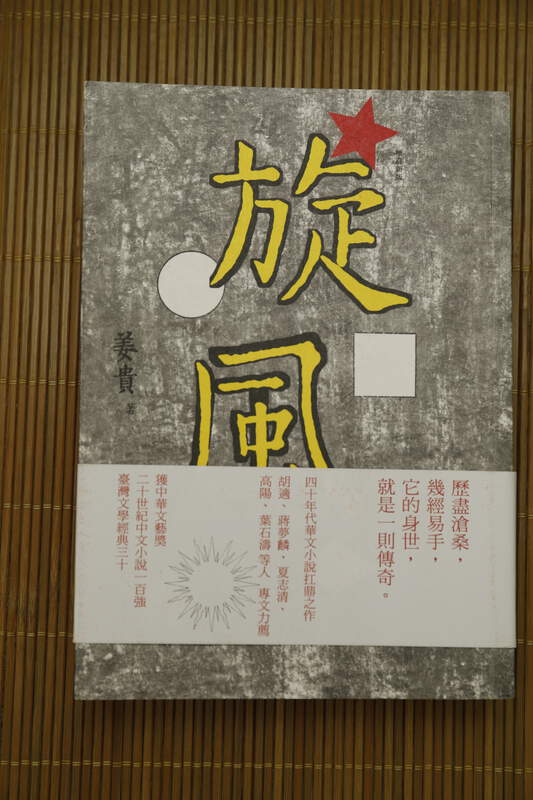 旋風
姜貴 著
歷盡滄桑，
幾經易手，
它的身世，
就是一則傳奇。
四十年代華文小說扛鼎之作
胡適、蔣夢麟、夏志清、
高陽、葉石濤等人 專文力薦
獲中華文藝獎
二十世紀中文小說一百強
臺灣文學經典三十